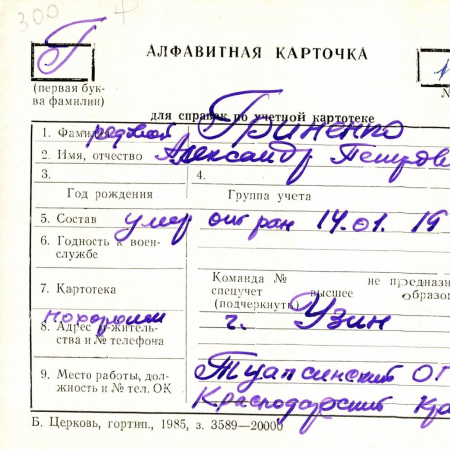 300
Г
АЛФАВИТНАЯ КАРТОЧКА
(первая бук-
ва фамилии)
№
для справок по учетной картотеке
1. Фамилия рядовой Гриненко
2. Имя, отчество Александр Петрови
3. 4.
Год рождения Группа учета
5. Состав умер от ран 14.01. 19
6. Годность к воен-
службе
Команда № не предназн
7. Картотека спецучет высшее образо
(подчеркнуть)
похоронен
8. Адрес и житель- г. Узин
ства и № телефона
9. Место работы, дол- Туапсинский ОГ
жность и № тел. ОК Краснодарский кра
Б. Церковь, гортип., 1985, з. 3589—20000